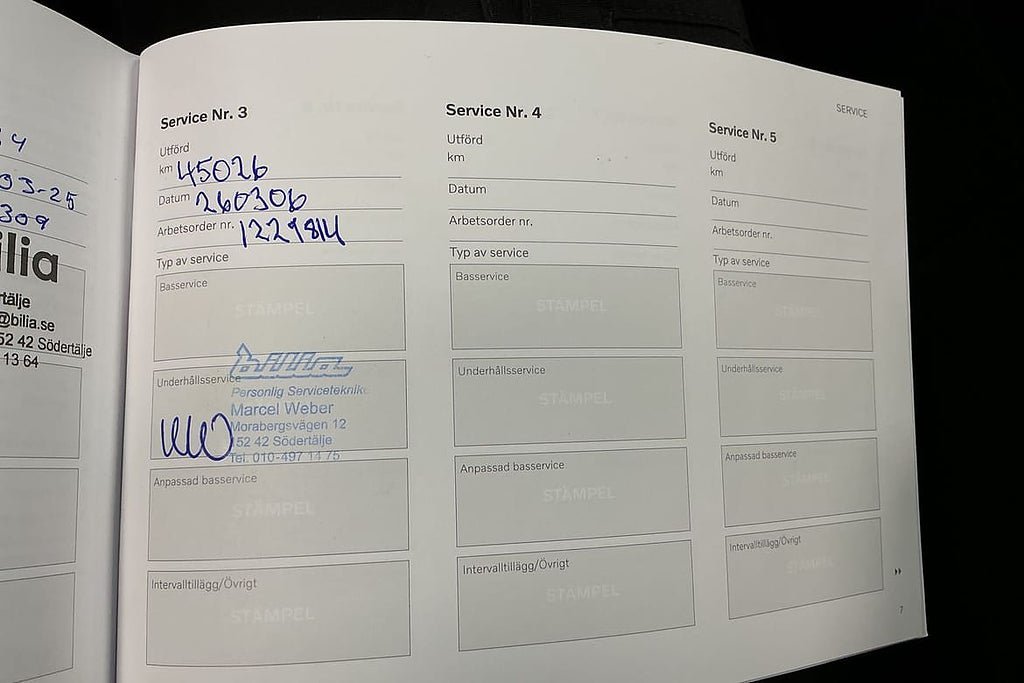 03-25
309
ilia
rtälje
@bilia.se
52 42 Södertälje
13 64
SERVICE
Service Nr. 3
Utförd
km 45026
Datum 260306
Arbetsorder nr. 1229814
Typ av service
Basservice
STÄMPEL
Underhållsservice
bilia
Personlig Servicetekniker
Marcel Weber
Morabergsvägen 12
152 42 Södertälje
Tel. 010-497 14 75
Anpassad basservice
STÄMPEL
Intervalltillägg/Övrigt
STÄMPEL
Service Nr. 4
Utförd
km
Datum
Arbetsorder nr.
Typ av service
Basservice
STÄMPEL
Underhållsservice
STÄMPEL
Anpassad basservice
STÄMPEL
Intervalltillägg/Övrigt
STÄMPEL
Service Nr. 5
Utförd
km
Datum
Arbetsorder nr.
Typ av service
Basservice
STÄMPEL
Underhållsservice
STÄMPEL
Anpassad basservice
STÄMPEL
Intervalltillägg/Övrigt
STÄMPEL
7